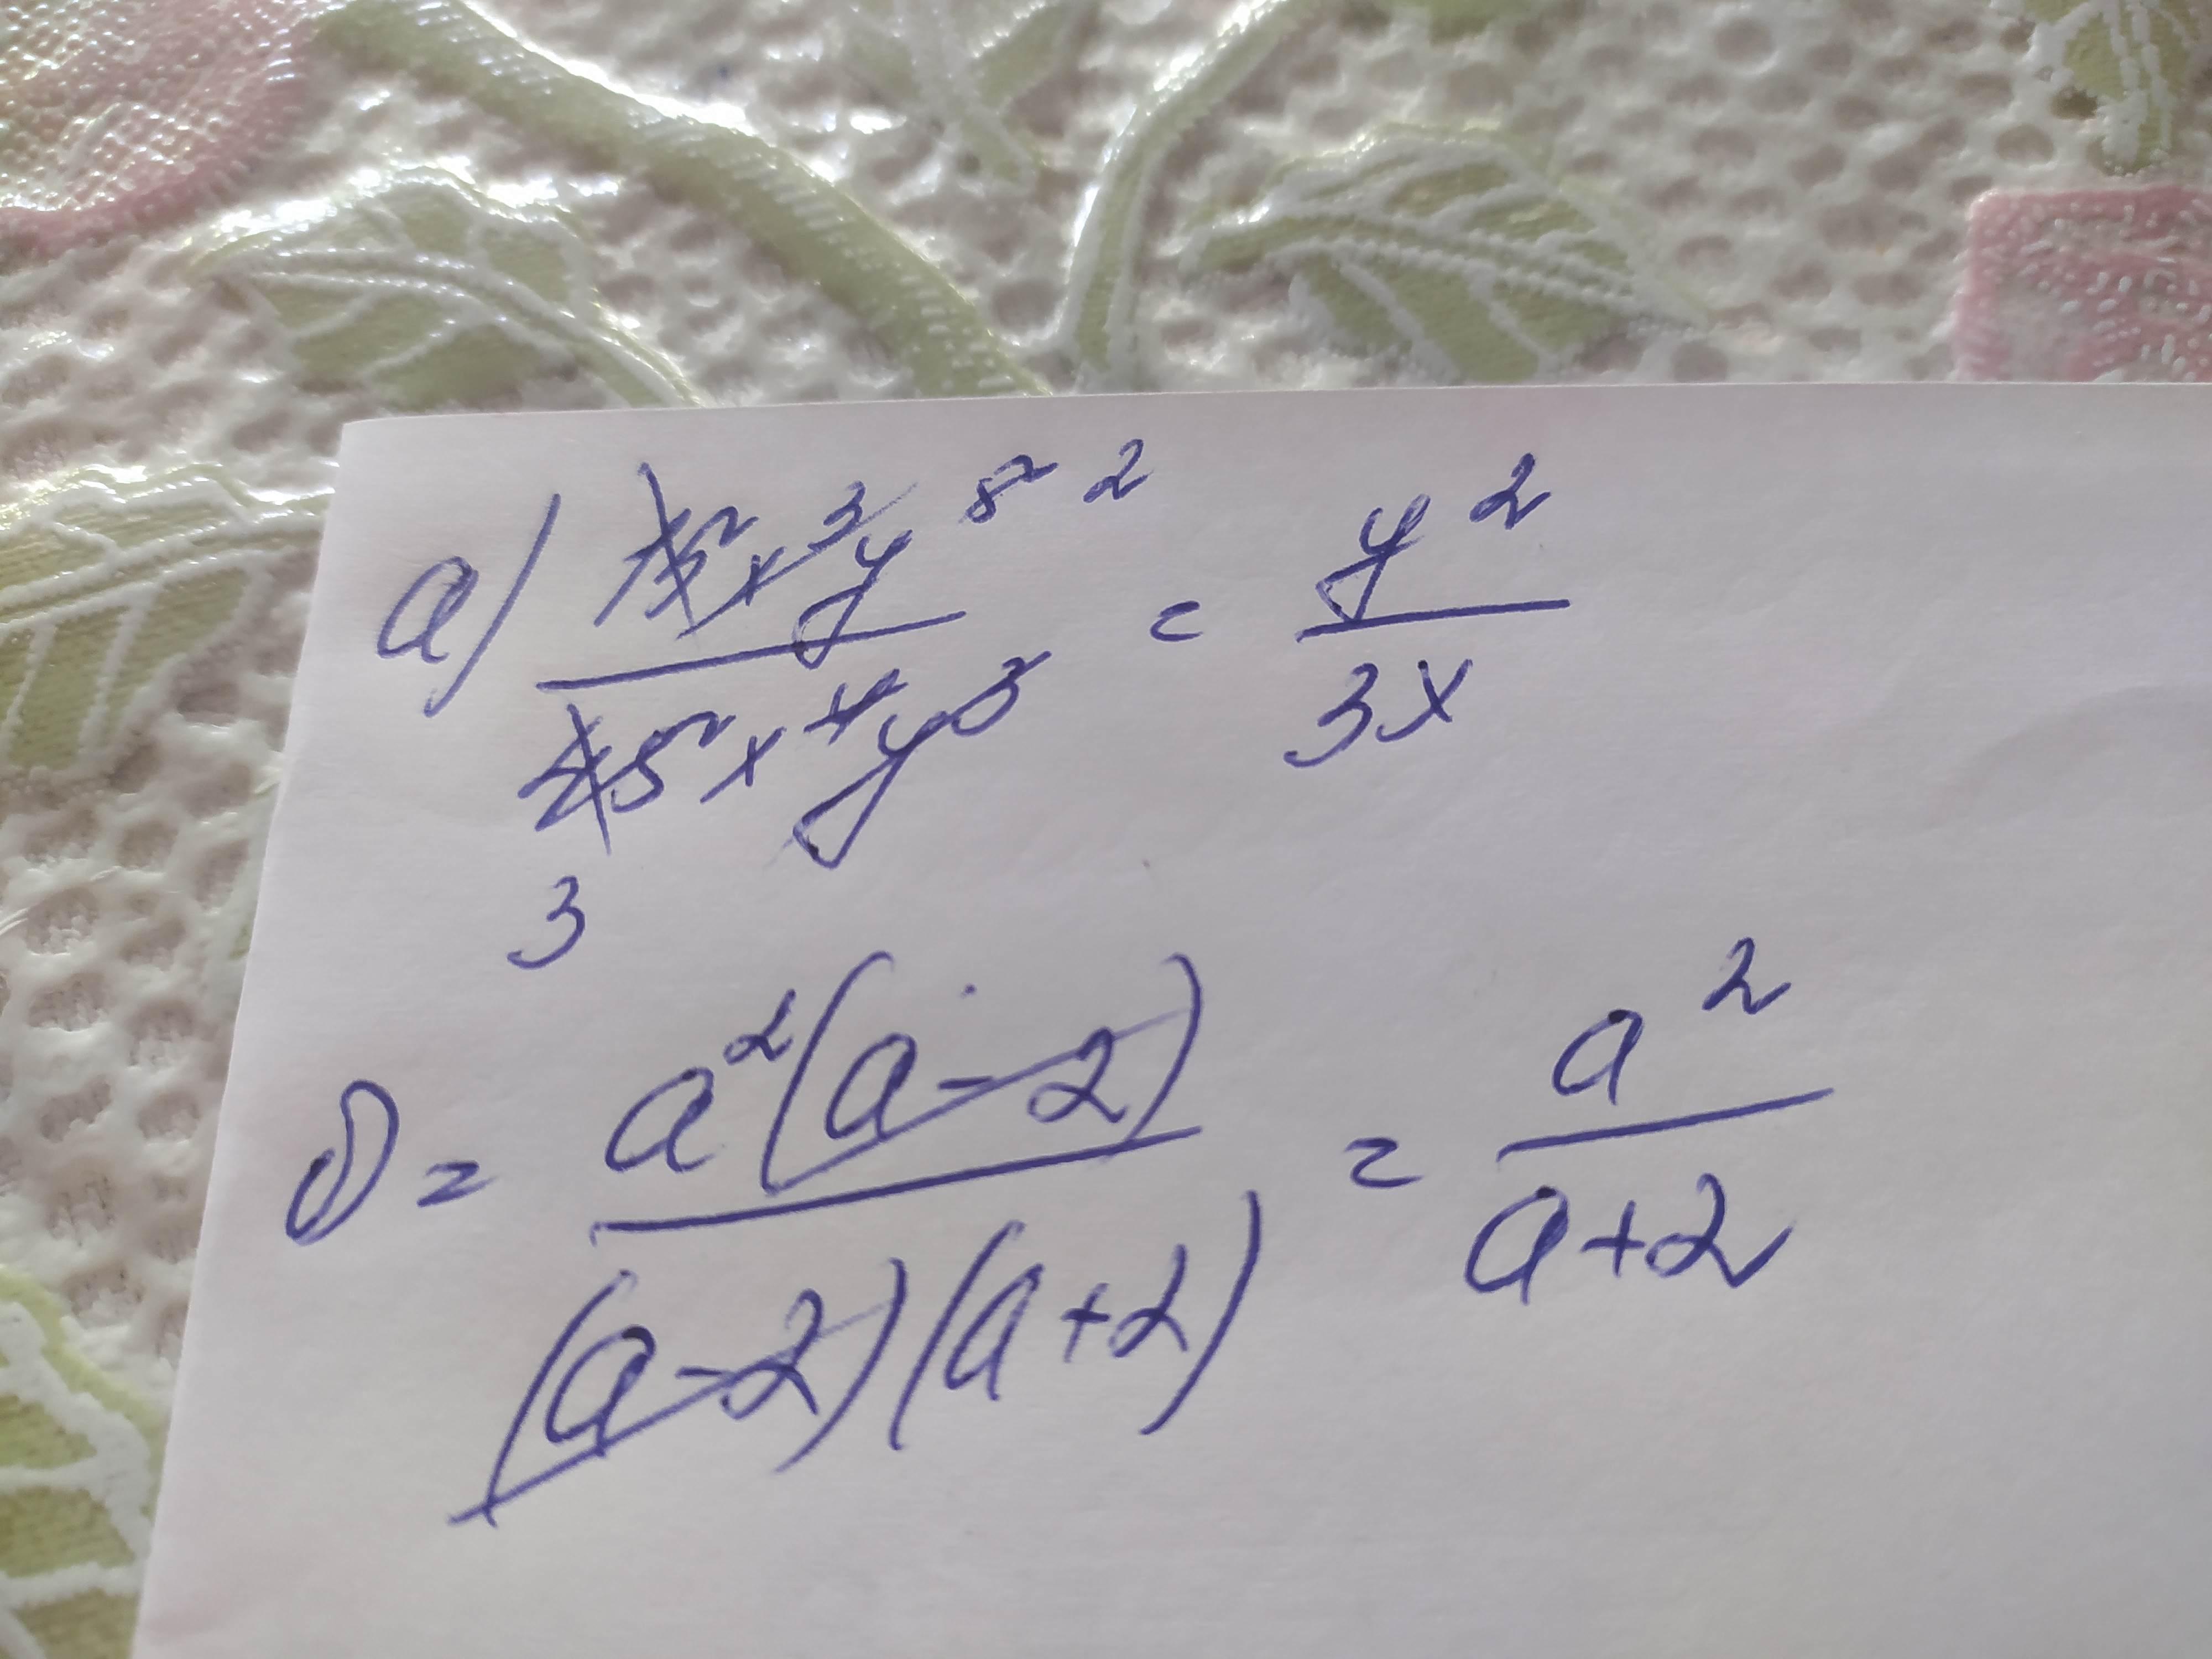 а) 15x³y⁵ ² / 45x⁴y³ = y² / 3x
3
б) = a²(a-2) / (a-2)(a+2) = a² / a+2